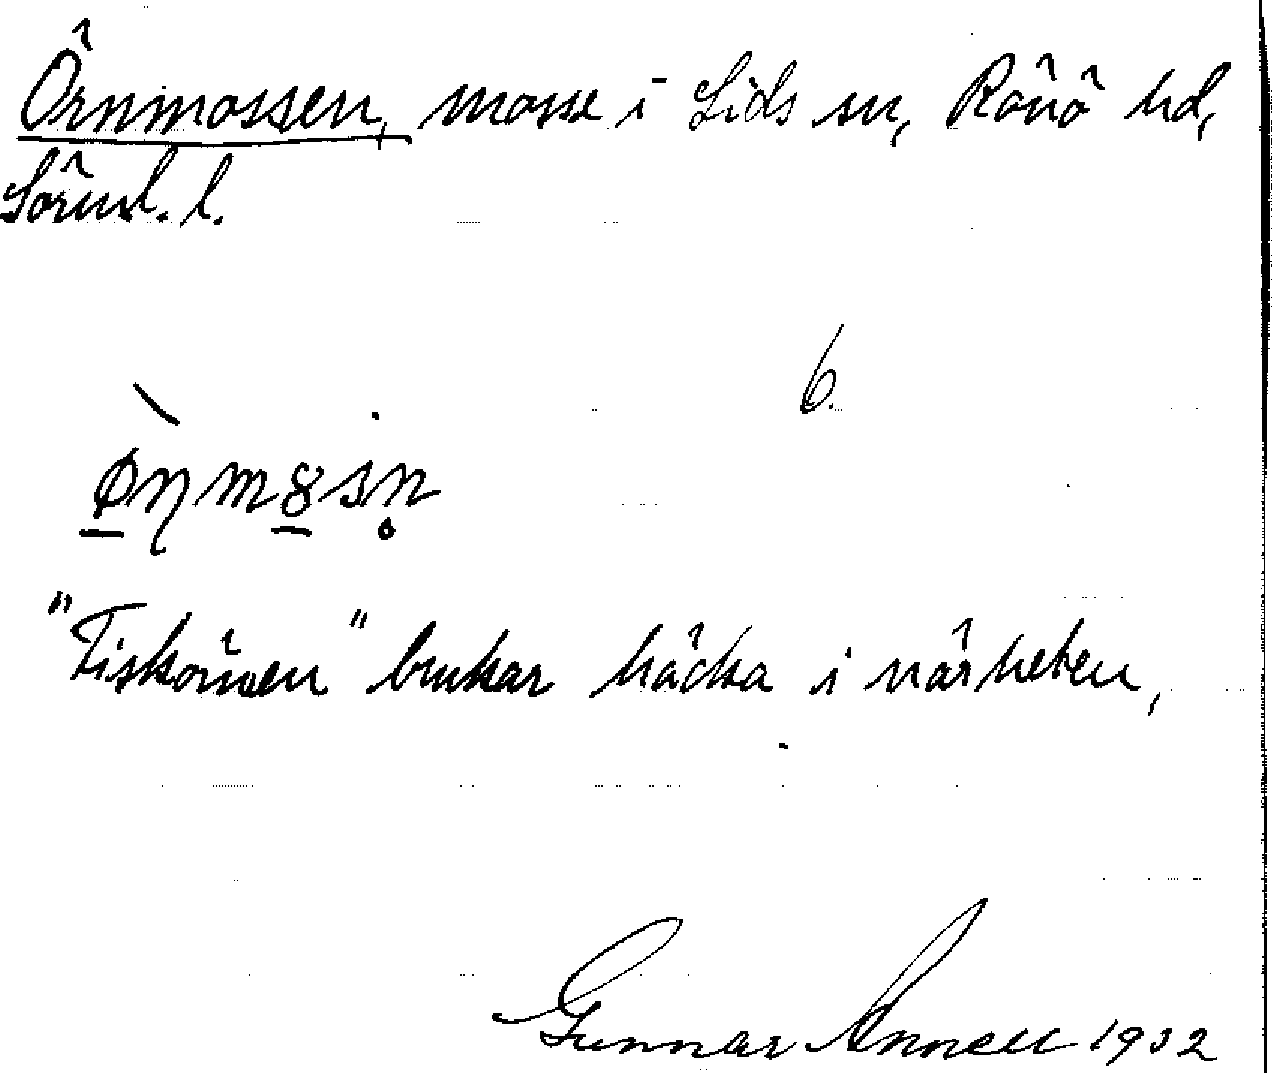 Örnmossen, mosse i Lids sn, Rönö hd,
Sörml. l.
6.
"Fiskörnen" brukar häcka i närheten,
Gunnar Annell 1932